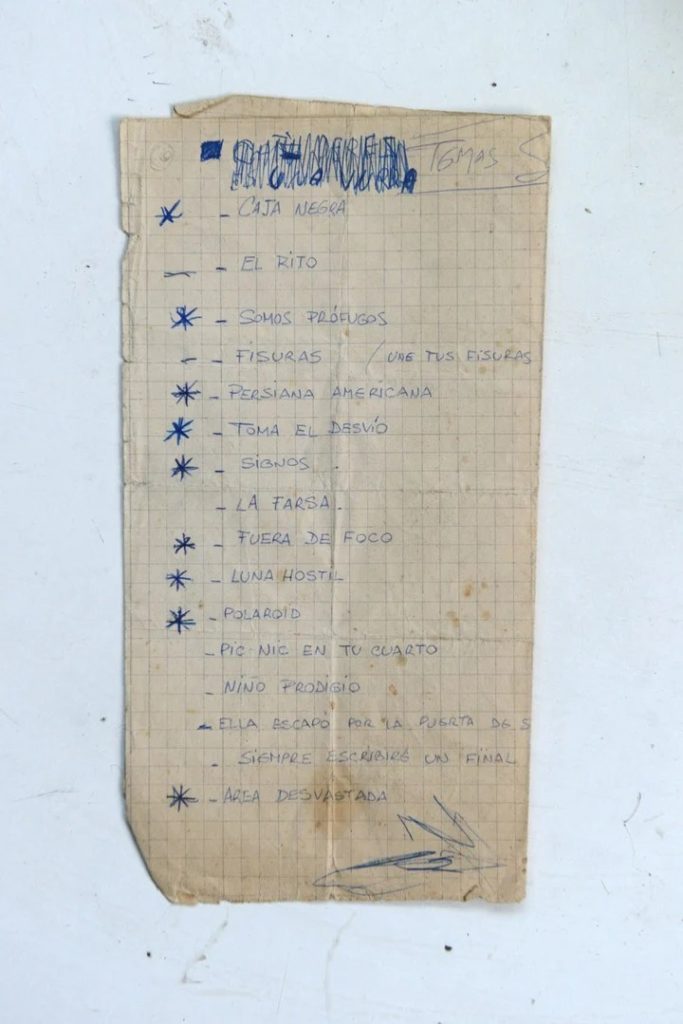 TOMAS
- CAJA NEGRA
- EL RITO
- SOMOS PRÓFUGOS
- FISURAS / UNE TUS FISURAS
- PERSIANA AMERICANA
- TOMA EL DESVÍO
- SIGNOS .
- LA FARSA.
- FUERA DE FOCO
- LUNA HOSTIL
- POLAROID
- PIC-NIC EN TU CUARTO
- NIÑO PRODIGIO
- ELLA ESCAPÓ POR LA PUERTA DE S
- SIEMPRE ESCRIBIRÉ UN FINAL
- AREA DESVASTADA